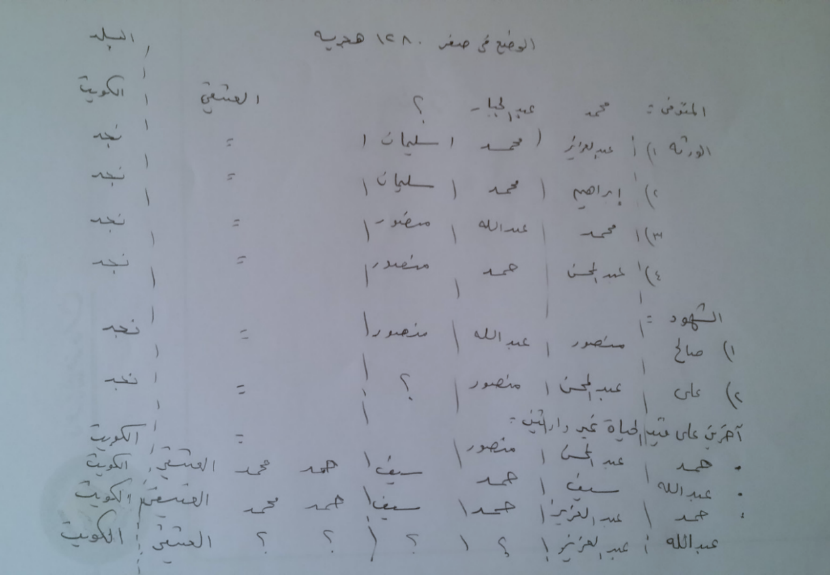 الوضع في صفر ١٢٨٠ هجرية البلد
المتوفى = محمد عبدالجبار ؟ العتيقي الكويت
الورثة ١) عبدالعزيز محمد سليمان = نجد
٢) إبراهيم محمد سليمان = نجد
٣) محمد عبدالله منصور = نجد
٤) عبدالمحسن حمد منصور = نجد
الشهود =
١) صالح منصور عبدالله منصور = نجد
٢) على عبدالمحسن منصور ؟ = نجد
آخرين على قيد الحياة غير وارثين =
• حمد عبدالمحسن منصور = الكويت
• عبدالله سيف حمد سيف حمد محمد العتيقي الكويت
• حمد عبدالعزيز حمد سيف حمد محمد العتيقي الكويت
عبدالله عبدالعزيز ؟ ؟ ؟ ؟ العتيقي الكويت